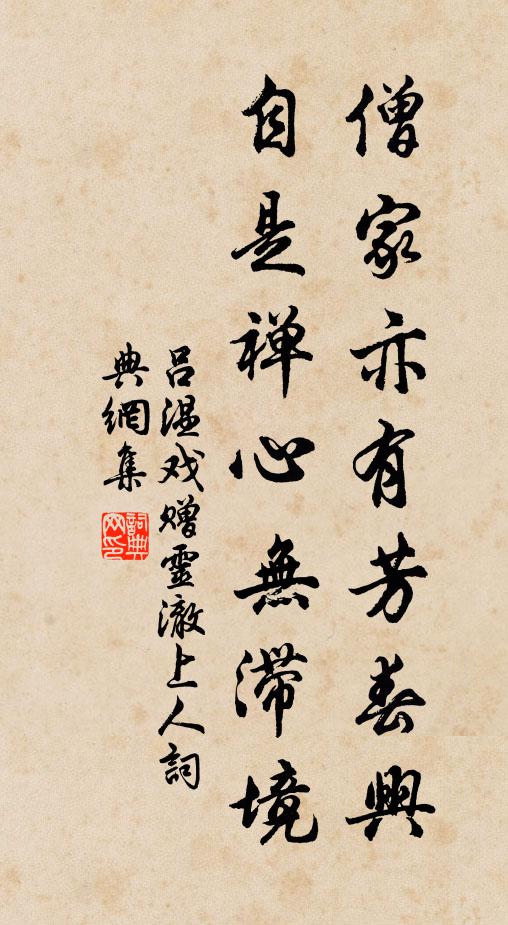 僧家亦有芳春興
自是禅心無滞境
吕温戏赠靈澈上人詞
典網集
詞典網印